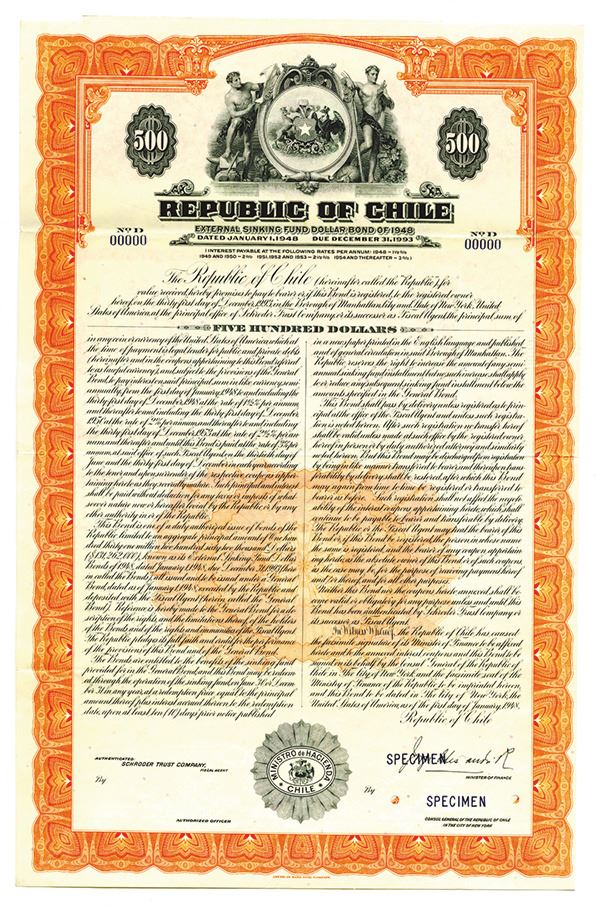 500
500
REPUBLIC OF CHILE
EXTERNAL SINKING FUND DOLLAR BOND OF 1948
DATED JANUARY 1, 1948 DUE DECEMBER 31, 1993
No D
00000
No D
00000
INTEREST PAYABLE AT THE FOLLOWING RATES PER ANNUM: 1948 – 1½%
1949 AND 1950 – 2% 1951, 1952 AND 1953 – 2½% 1954 AND THEREAFTER – 3%
The Republic of Chile (hereinafter called the Republic), for
value received, hereby promises to pay to bearer, or if this Bond is registered, to the registered owner
hereof, on the thirty first day of December, 1993, in the Borough of Manhattan, City and State of New York, United
States of America, at the principal office of Schroder Trust Company, or its successor as Fiscal Agent, the principal sum of
FIVE HUNDRED DOLLARS
in any coin or currency of the United States of America which at
the time of payment is legal tender for public and private debts
(hereinafter and in the coupons appertaining to this Bond referred
to as lawful currency), and, subject to the provisions of the General
Bond, to pay interest on said principal sum in like currency, semi-
annually, from the first day of January, 1948, to and including the
thirty first day of December, 1948, at the rate of 1½% per annum
and thereafter to and including the thirty first day of December,
1950, at the rate of 2% per annum and thereafter to and including
the thirty first day of December, 1953, at the rate of 2½% per an-
num and thereafter and until this Bond is paid at the rate of 3% per
annum, at said office of such Fiscal Agent, on the thirtieth day of
June and the thirty first day of December in each year according
to the tenor and upon surrender of the respective coupons apper-
taining hereto as they severally mature. Such principal and interest
shall be paid without deduction for any taxes or imposts of what-
soever nature now or hereafter levied by the Republic or by any
other authority in or of the Republic.
This Bond is one of a duly authorized issue of bonds of the
Republic limited to an aggregate principal amount of One hun-
dred thirty one million two hundred sixty two thousand Dollars
($131,262,000), known as its External Sinking Fund Dollar
Bonds of 1948, dated January 1, 1948, due December 31, 1993 (here-
in called the Bonds), all issued and to be issued under a General
Bond, dated as of January 1, 1948, executed by the Republic and
deposited with the Fiscal Agent (herein called the General
Bond). Reference is hereby made to the General Bond for a de-
scription of the rights, and the limitations thereof, of the holders
of the Bonds and of the rights and immunities of the Fiscal Agent.
The Republic pledges its full faith and credit for the performance
of the provisions of this Bond and of the General Bond.
The Bonds are entitled to the benefits of the sinking fund
provided for in the General Bond, and this Bond may be redeem-
ed through the operation of the sinking fund, on June 30 or Decem-
ber 31 in any year, at a redemption price equal to the principal
amount thereof plus interest accrued thereon to the redemption
date, upon at least ten (10) days' prior notice published
in a newspaper printed in the English language and published
and of general circulation in said Borough of Manhattan. The
Republic reserves the right to increase the amount of any semi-
annual sinking fund installment but no such increase shall apply
to or reduce any subsequent sinking fund installment below the
amounts specified in the General Bond.
This Bond shall pass by delivery unless registered as to prin-
cipal at the office of the Fiscal Agent and unless such registra-
tion is noted hereon. After such registration no transfer hereof
shall be valid unless made at such office by the registered owner
hereof in person or by duly authorized attorney and similarly
noted hereon. But this Bond may be discharged from registration
by being in like manner transferred to bearer and thereupon trans-
ferability by delivery shall be restored, after which this Bond
may again from time to time be registered or transferred to
bearer as before. Such registration shall not affect the negoti-
ability of the interest coupons appertaining hereto, which shall
continue to be payable to bearer and transferable by delivery.
The Republic, the Fiscal Agent may treat the bearer of this
Bond or, if this Bond be registered, the person in whose name
the same is registered, and the bearer of any coupon appertain-
ing hereto, as the absolute owner of this Bond or of such coupon,
as the case may be, for the purpose of receiving payment hereof
and/or thereof, and for all other purposes.
Neither this Bond nor the coupons hereto annexed shall be-
come valid or obligatory for any purpose unless and until this
Bond has been authenticated by Schroder Trust Company or
its successor as Fiscal Agent.
In Witness Whereof, the Republic of Chile has caused
the facsimile signature of its Minister of Finance to be affixed
hereto and to the annexed interest coupons and this Bond to be
signed on its behalf by the Consul General of the Republic of
Chile in The City of New York, and the facsimile seal of the
Ministry of Finance of the Republic to be imprinted hereon,
and this Bond to be dated in The City of New York, the
United States of America, as of the first day of January, 1948.
Republic of Chile
AUTHENTICATED:
SCHRODER TRUST COMPANY,
FISCAL AGENT
By
AUTHORIZED OFFICER
MINISTRO DE HACIENDA
CHILE
SPECIMEN
MINISTER OF FINANCE
By
SPECIMEN
CONSUL GENERAL OF THE REPUBLIC OF CHILE
IN THE CITY OF NEW YORK